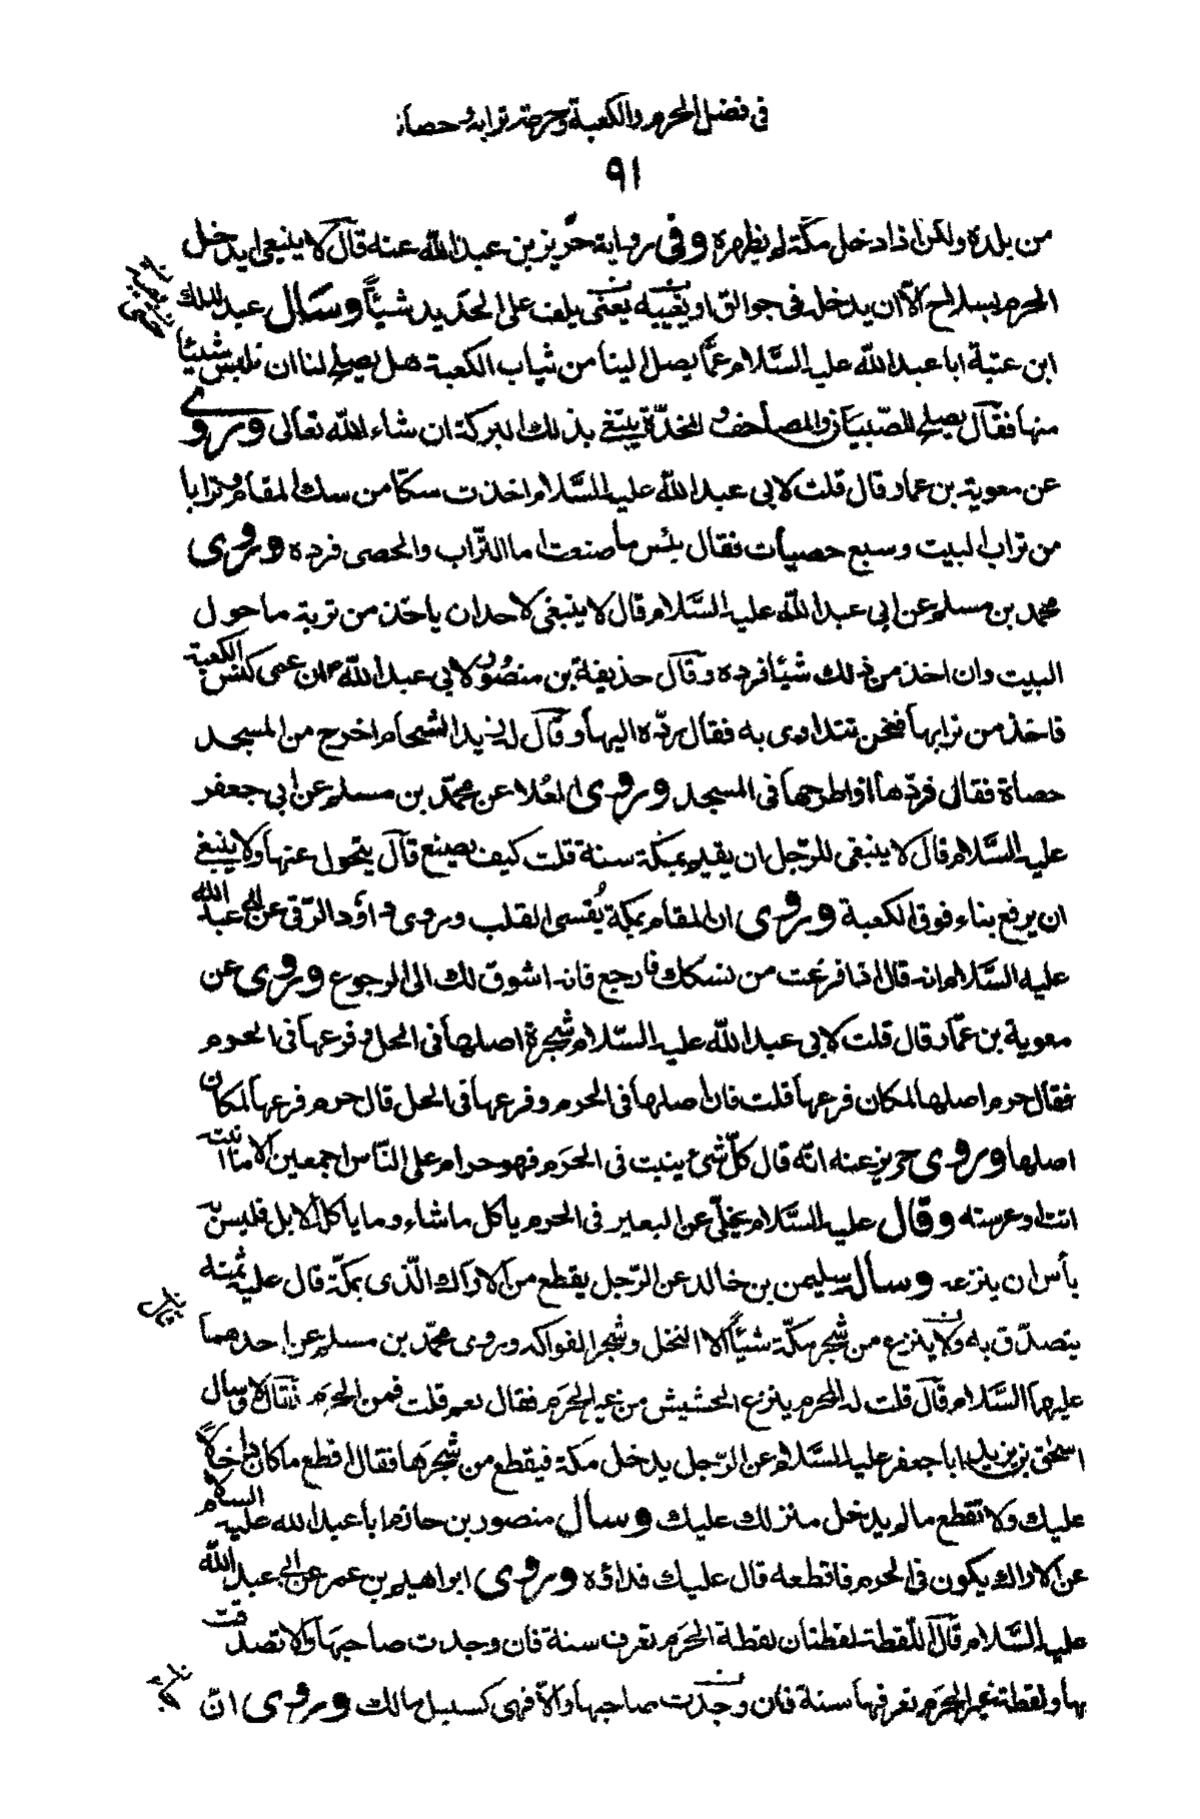 في فضل الحرم والكعبة وحرمة ترابه وحصاة
٩١
من بلده ولكن اذا دخل مكة لم يظهره وفي رواية حريز بن عبد الله عنه قال لا ينبغي ان يدخل
الحرم بسلاح الّا ان يدخله في جوالق او يغيبه يعنى يلف على الحديد شيئاً وسال عبد الملك
ابن عتبة ابا عبد الله عليه السَّلام عمَّا يصل الينا من ثياب الكعبة هل يصلح لنا ان نلبس شيئا
منها فقال يصلح للصّبيان والمصاحف و المخدّة يبتغي بذلك البركة ان شاء الله تعالى وروى
عن معوية بن عمار قال قلت لابي عبد الله عليه السَّلام اخذت سكّا من سك المقام وترابا
من تراب البيت وسبع حصيات فقال بئس ما صنعت اما التّراب والحصى فرده وروى
محمد بن مسلم عن ابي عبد الله عليه السَّلام قال لا ينبغي لاحد ان ياخذ من تربة ما حول
البيت وان اخذ من ذلك شيئا فرده وقال حذيفة بن منصور لابي عبد الله ان عمى كنس الكعبة
فاخذ من ترابها فنحن نتداوى به فقال ردّه اليها وقال له زيد الشحام اخرج من المسجد
حصاة فقال فردّها او اطرحها في المسجد وروى العلا عن محمّد بن مسلم عن ابي جعفر
عليه السَّلام قال لا ينبغى للرّجل ان يقيم بمكّة سنة قلت كيف يصنع قال يتحول عنها ولا ينبغي
ان يرفع بناء فوق الكعبة وروى ان المقام بمكة يُقسى القلب وروى داود الرّقى عن ابي عبد الله
عليه السَّلام انه قال اذا فرغت من نسكك فارجع فانه اشوق لك الى الرجوع وروى عن
معوية بن عمّار قال قلت لابي عبد الله عليه السّلام شجرة اصلها في الحل وفرعها في الحرم
فقال حرم اصلها لمكان فرعها قلت فان اصلها في الحرم وفرعها في الحل قال حرم فرعها لمكان
اصلها وروى حريز عنه انّه قال كلّ شئ ينبت في الحرم فهو حرام على النّاس اجمعين الا ما انبته
انت او غرسته وقال عليه السَّلام يخلّى عن البعير في الحرم ياكل ما شاء وما ياكل الابل فليس به
بأس ان ينزعه وسأل سليمن بن خالد عن الرّجل يقطع من الاراك الّذى بمكّة قال عليه ثمنه
يتصدّق به ولا ينزع من شجر مكّة شيئاً الا النخل وشجر الفواكه وروى محمّد بن مسلم عن احدهما
عليهما السَّلام قال قلت له المحرم ينزع الحشيش من غير الحرم فقال نعم قلت فمن الحرم فقال لا وسال
اسحق بن يزيد ابا جعفر عليه السَّلام عن الرّجل يدخل مكة فيقطع من شجرها فقال اقطع ما كان داخلاً
عليك ولا تقطع ما لم يدخل منزلك عليك وسأل منصور بن حازم ابا عبد الله عليه السلام
عن الاراك يكون في الحرم فاقطعه قال عليك فداؤه وروى ابراهيم بن عمر عن ابي عبد الله
عليه السَّلام قال اللّقطة لقطتان لقطة الحرم تعرف سنة فان وجدت صاحبها والا تصدقت
بها ولقطة غير الحرم تعرفها سنة فان وجدت صاحبها والّا فهى كسبيل مالك وروى انّ